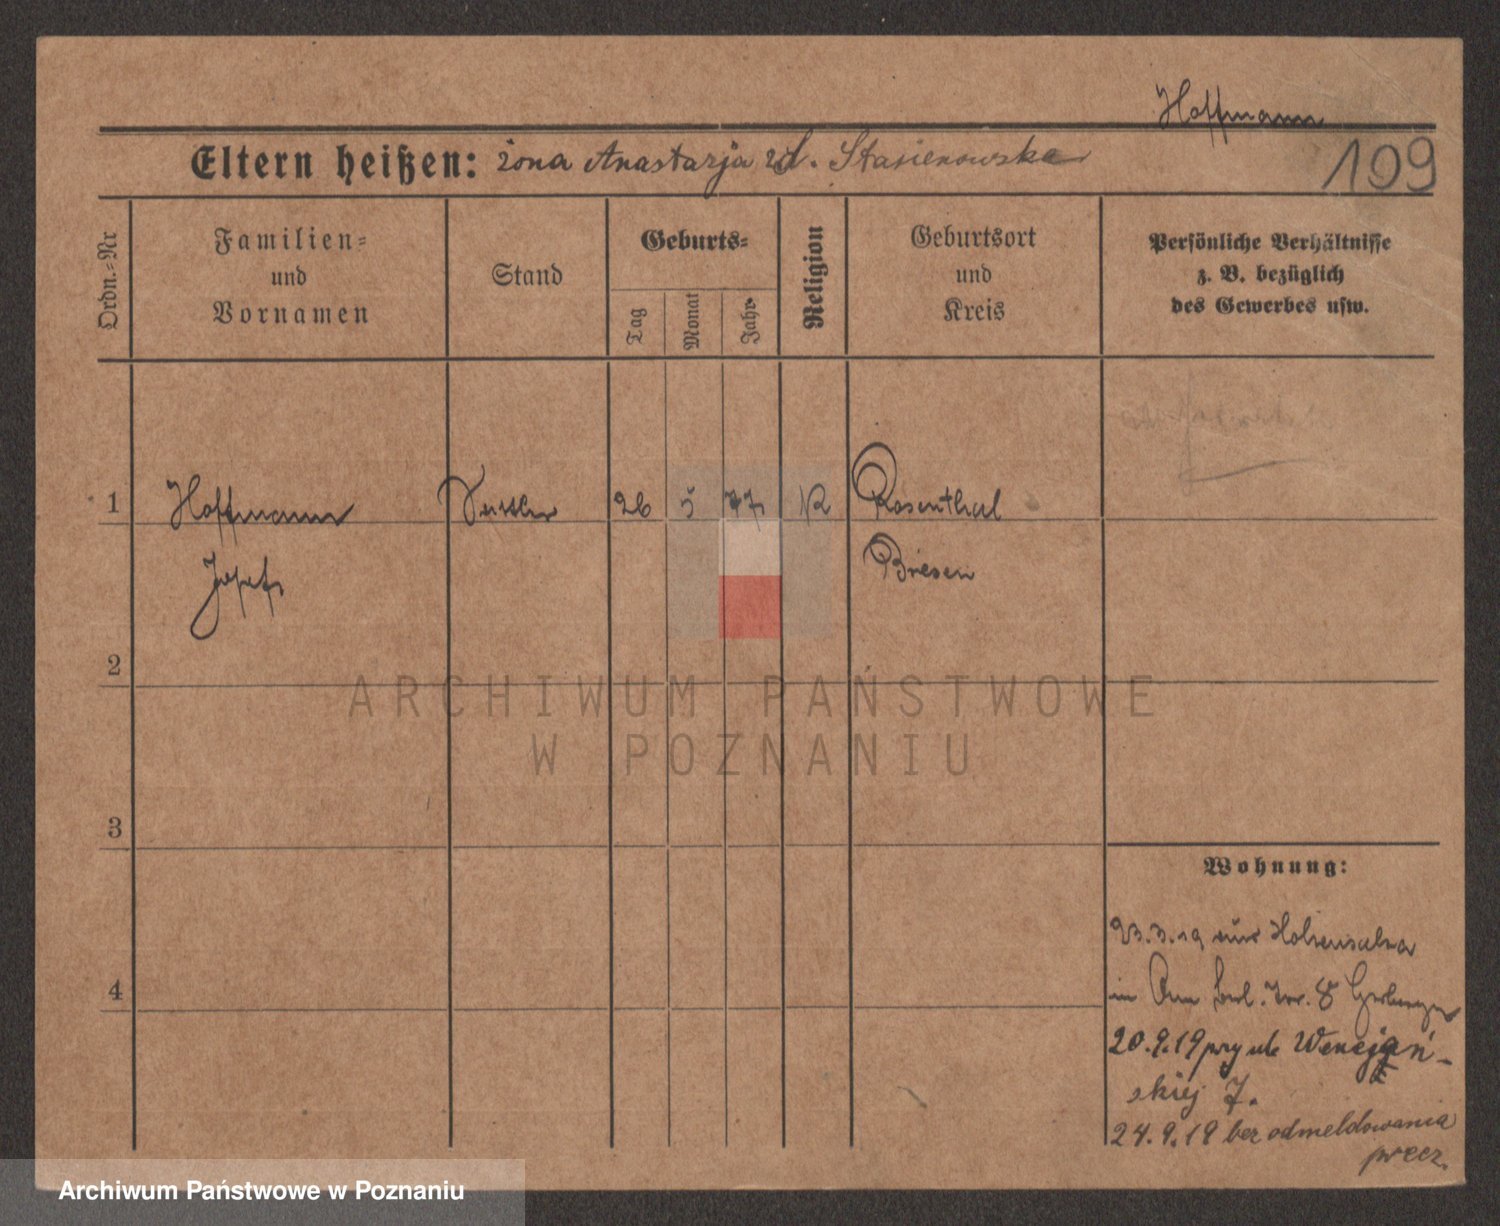 Hoffmann
Eltern heißen: żona Anastazja zd. Stasienowska
109
Ordn.-Nr
Familien-
und
Vornamen
Stand
Geburts-
Tag
Monat
Jahr
Religion
Geburtsort
und
Kreis
Persönliche Verhältnisse
z. B. bezüglich
des Gewerbes usw.
1 Hoffmann Sattler 26 5 77 K Rosenthal
Josef Briesen
2
ARCHIWUM PAŃSTWOWE
W POZNANIU
3
Wohnung:
23.3.19 aus Hohensalza
4
in 8
20.9.19 przy ul. Wenecjań-
skiej 7.
24.9.19 bez odmeldowania
precz.
Archiwum Państwowe w Poznaniu